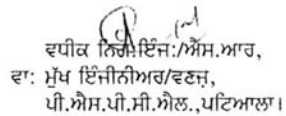 ਵਧੀਕ ਨਿਗਮ ਇੰਜ:/ਐਸ.ਆਰ,
ਵਾ: ਮੁੱਖ ਇੰਜੀਨੀਅਰ/ਵਣਜ,
ਪੀ.ਐਸ.ਪੀ.ਸੀ.ਐਲ.,ਪਟਿਆਲਾ।